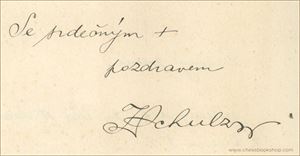 Se srdečným +
pozdravem
Schulz
www.chessbookshop.com